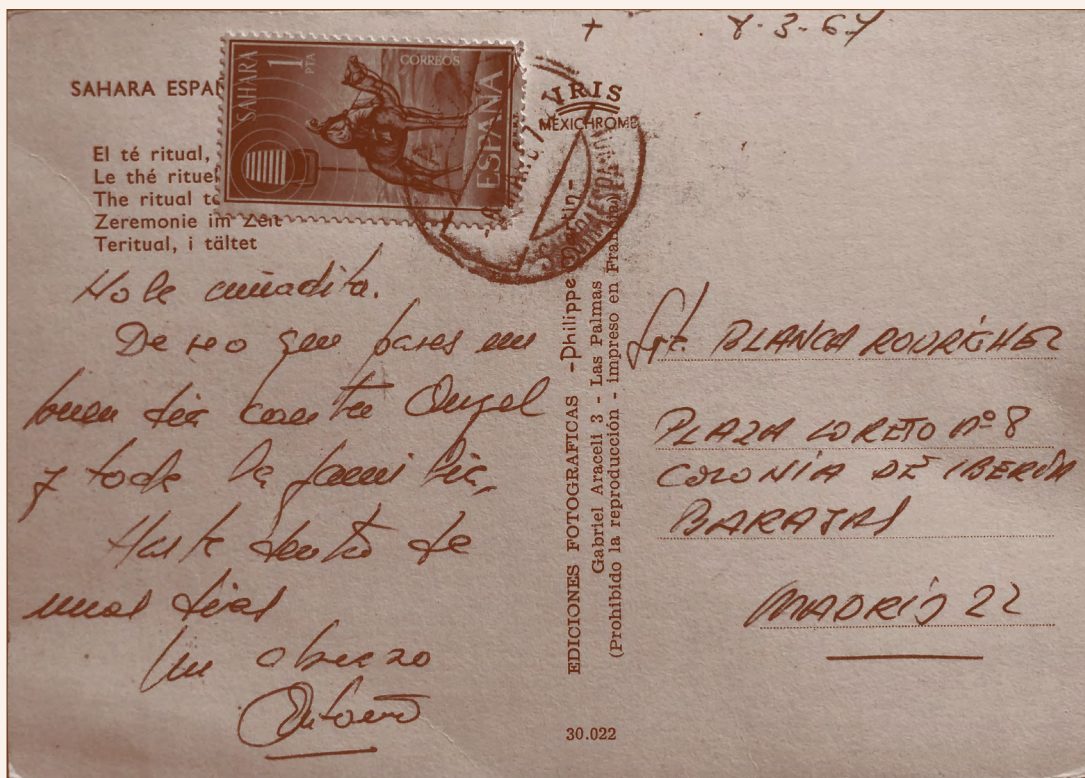 + 8-3-67
SAHARA ESPAÑ
El té ritual,
Le thé rituel
The ritual te
Zeremonie im Zelt
Teritual, i tältet
SAHARA
1
PTA
CORREOS
ESPAÑA
URIS
MEXICHROME
SAHARA ESPAÑOL
Hola cuñadita.
Deseo que pases un
buen día con tu Angel
y toda la familia,
Hasta dentro de
unos días
Un abrazo
Antonio
EDICIONES FOTOGRAFICAS - Philippe
Gabriel Araceli 3 - Las Palmas
(Prohibido la reproducción - impreso en
30.022
Srta. BLANCA RODRÍGUEZ
PLAZA LORETO Nº 8
COLONÍA DE IBERIA
BARAJAS
MADRID 22